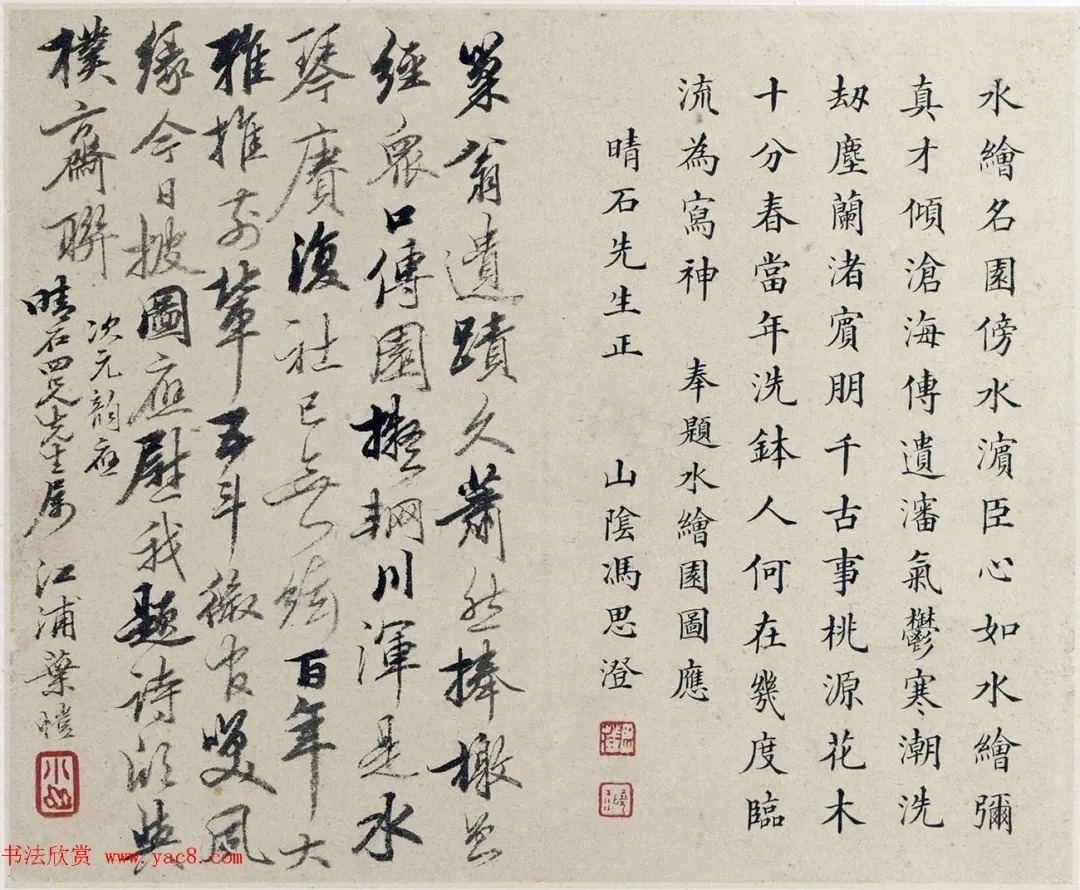 水繪名園傍水濱臣心如水繪彌
真才傾滄海傳遺瀋氣鬱寒潮洗
劫塵蘭渚賓朋千古事桃源花木
十分春當年洗鉢人何在幾度臨
流為寫神 奉題水繪園圖應
晴石先生正 山陰馮思澄
巢翁遺蹟久蕭然捧檄曾
經眾口傳園擬輞川渾是水
琴賡復社已無絃百年大
雅推前輩五斗微官嘆夙
緣今日披圖應慰我題詩欣與
樸齋聯
次元韵應
晴石四兄先生属 江浦葉
书法欣赏 www.yac8.com